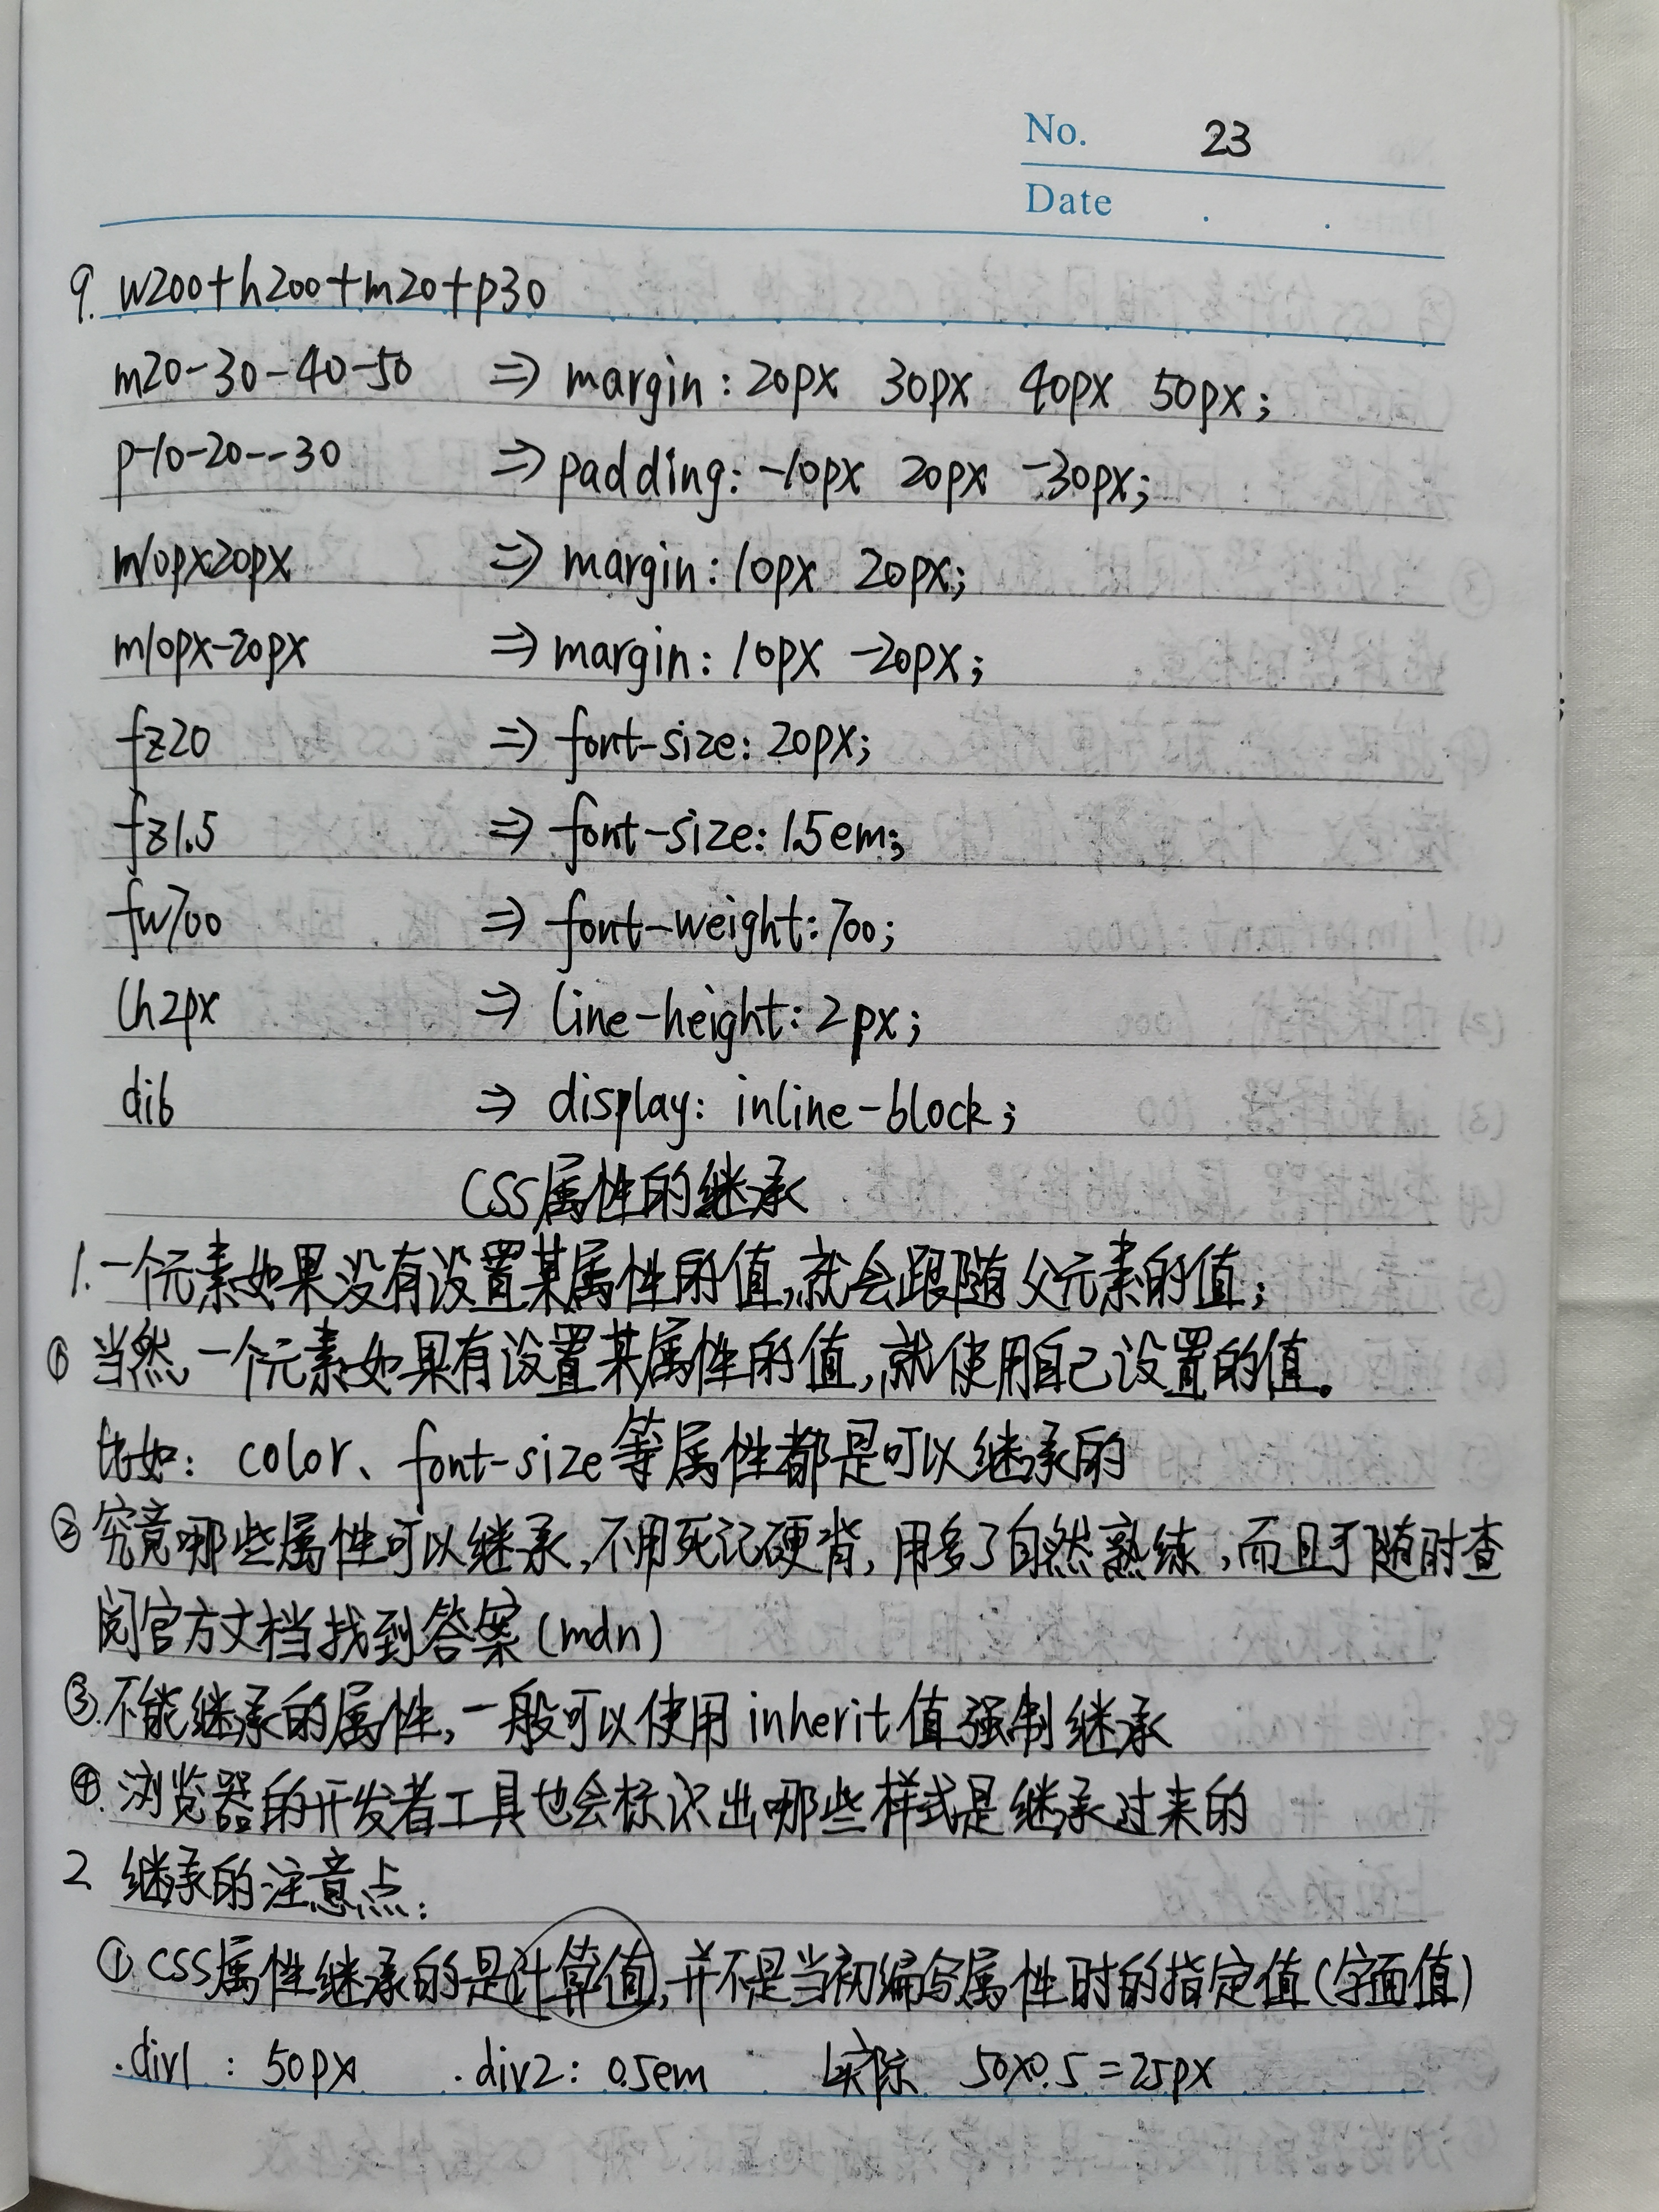 No. 23
Date . .
9. w200+h200+m20+p30
m20-30-40-50 ⇒ margin: 20px 30px 40px 50px;
p-10-20--30 ⇒ padding: -10px 20px -30px;
m10px20px ⇒ margin: 10px 20px;
m10px-20px ⇒ margin: 10px -20px;
fz20 ⇒ font-size: 20px;
fz1.5 ⇒ font-size: 1.5em;
fw700 ⇒ font-weight: 700;
lh2px ⇒ line-height: 2px;
dib ⇒ display: inline-block;
CSS属性的继承
1.一个元素如果没有设置某属性的值,就会跟随父元素的值;
① 当然,一个元素如果有设置某属性的值,就使用自己设置的值。
比如: color、font-size等属性都是可以继承的
② 究竟哪些属性可以继承,不用死记硬背,用多了自然熟练,而且可随时查
阅官方文档找到答案(mdn)
③.不能继承的属性,一般可以使用inherit值强制继承
④.浏览器的开发者工具也会标识出哪些样式是继承过来的
2、继承的注意点:
①.CSS属性继承的是计算值,并不是当初编写属性时的指定值(字面值)
.div1 : 50px .div2: 0.5em 实际 50×0.5=25px